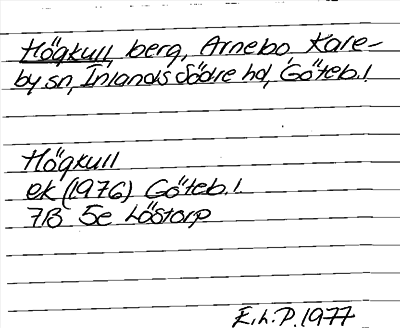 Högkull, berg, Arnebo, Kare-
by sn, Inlands Södre hd, Göteb.l.
Högkull
ek (1976) Göteb.l.
7B 5e Löstorp
E.L.P. 1977